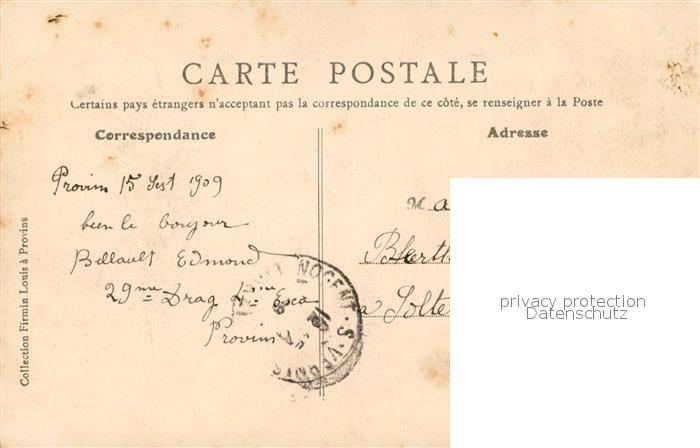 CARTE POSTALE
Certains pays étrangers n'acceptant pas la correspondance de ce côté, se renseigner à la Poste
Correspondance
Adresse
Provins 15 Sept 1909
bien le bonjour
Billault Edmond
29me Drag 4me Esca
Provins
Ma
Berth
a Solte
NOGENT-S-VERNISS
Collection Firmin Louis à Provins
privacy protection
Datenschutz